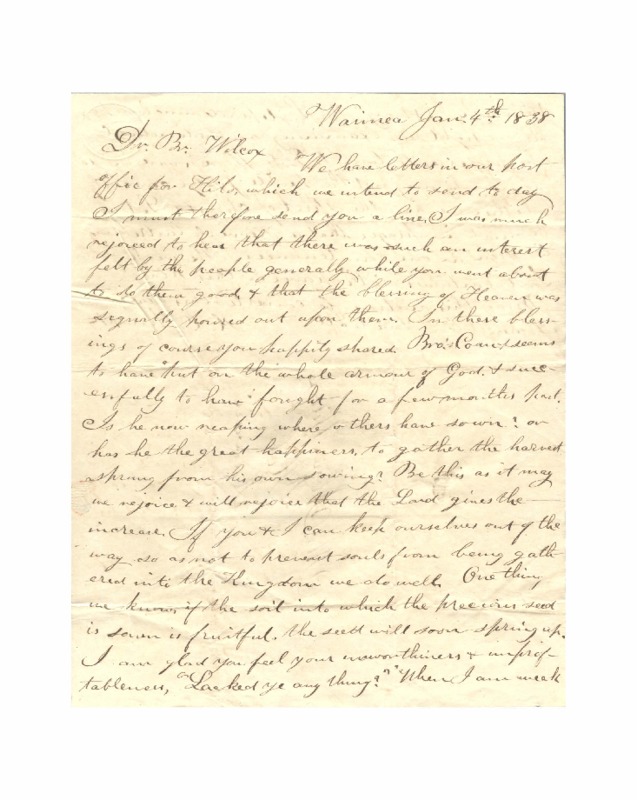 Waimea Jan. 4th. 1838
Dr. Br. Wilcox We have letters in our post
office for Hilo, which we intend to send to day
I must therefore send you a line. I was much
rejoiced to hear that there was such an interest
felt by the people generally while you went about
to do them good & that the blessing of Heaven was
signally poured out upon them. In these bless-
ings of course you happily shared. Bro. Coan, seems
to have put on the whole armour of God, & succ-
essfully to have fought for a few months past.
Is he now reaping where others have sown? or
has he the great happiness, to gather the harvest
sprung from his own sowing? Be this as it may
we rejoice & will rejoice that the Lord gives the
increase. If you & I can keep ourselves out of the
way so as not to prevent souls from being gath-
ered into the Kingdom we do well. One thing
we know, if the soil into which the precious seed
is sown is fruitful. the seed will soon spring up.
I am glad you feel your unworthiness & unprof-
tableness, "Lacked ye any thing?" "When I am weak